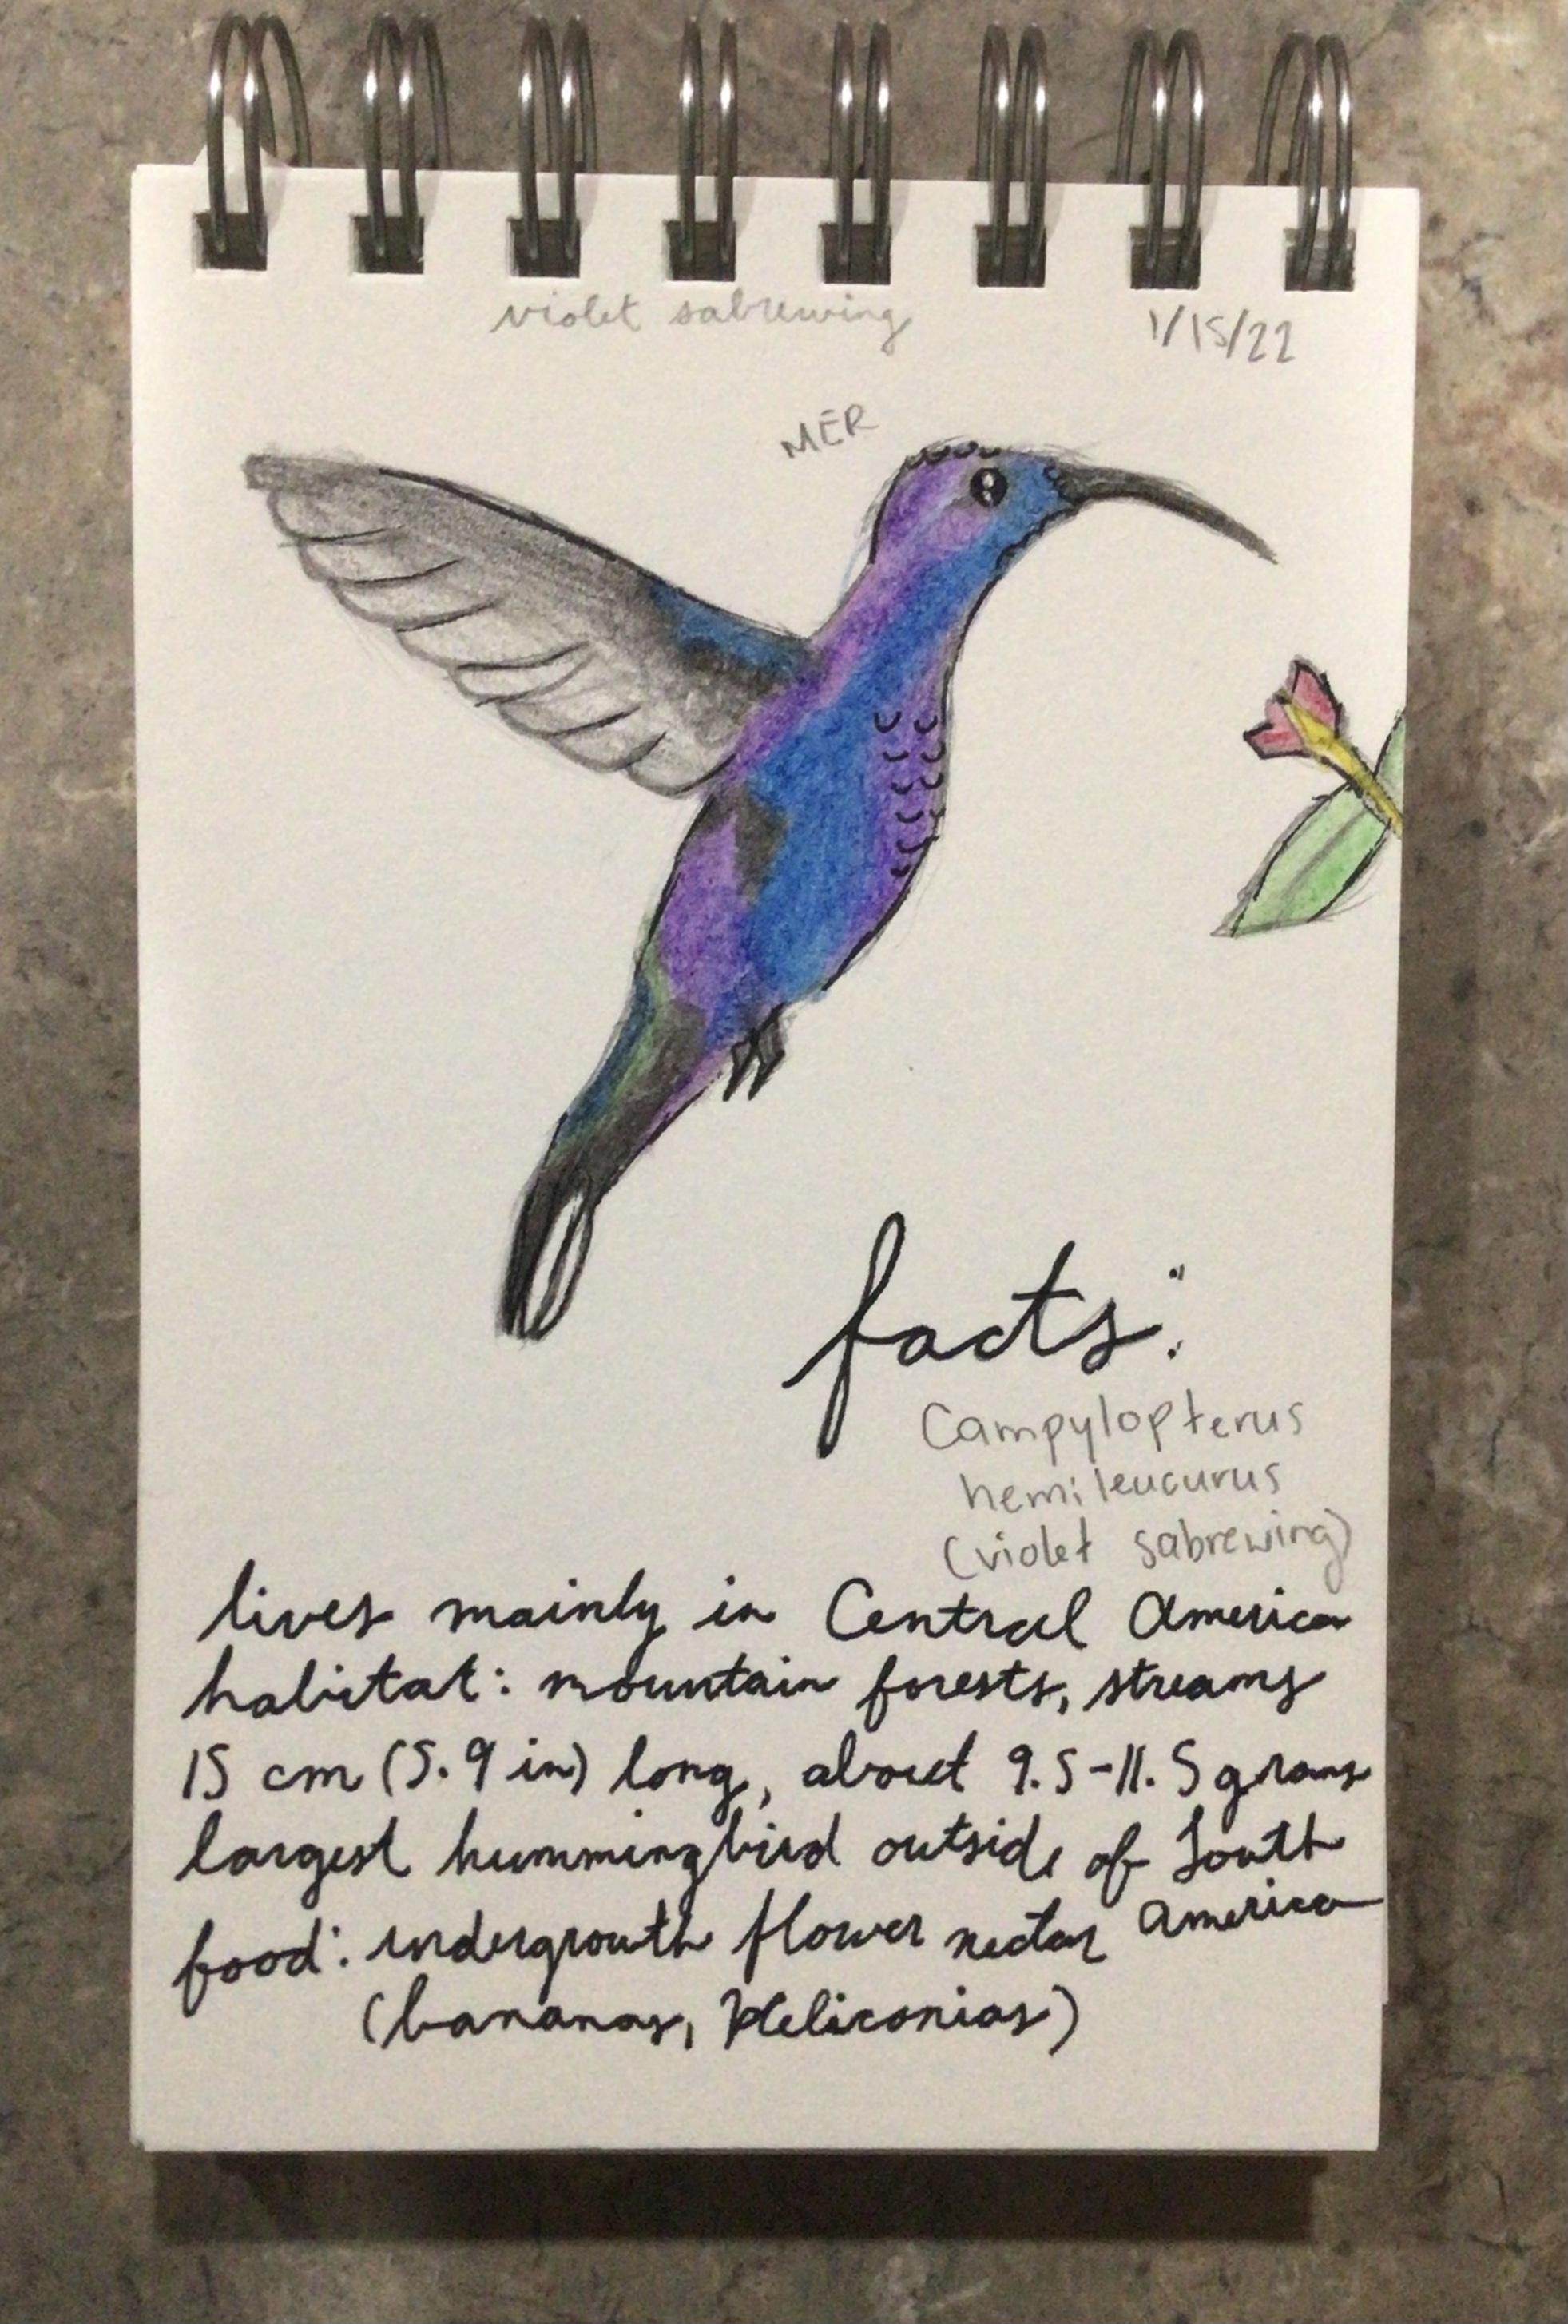 violet sabrewing
1/15/22
MER
facts:
Campylopterus
hemileucurus
(violet sabrewing)
lives mainly in Central America
habitat: mountain forests, streams
15 cm (5.9 in) long, about 9.5-11.5 grams
largest hummingbird outside of South America
food: undergrowth flower nectar
(bananas, Heliconias)